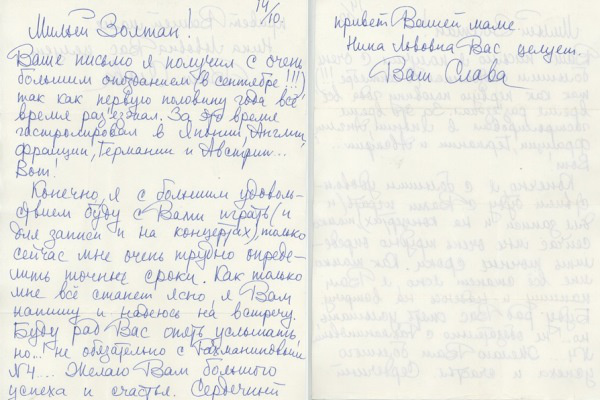 14/10.
Милый Золтан!
Ваше письмо я получил с очень
большим опозданием (в сентябре!!!)
так как первую половину года всё
время раз'езжал. За это время
гастролировал в Японии, Англии,
Франции, Германии и Австрии...
Вот!
Конечно, я с большим удоволь-
ствием буду с Вами играть (и
для записи и на концертах), только
сейчас мне очень трудно опреде-
лить точные сроки. Как только
мне всё станет ясно, я Вам
напишу и надеюсь на встречу.
Буду рад Вас опять услышать,
но... не обязательно с Рахманиновым
№4... Желаю Вам большого
успеха и счастья. Сердечный
привет Вашей маме.
Нина Львовна Вас целует.
Ваш Слава